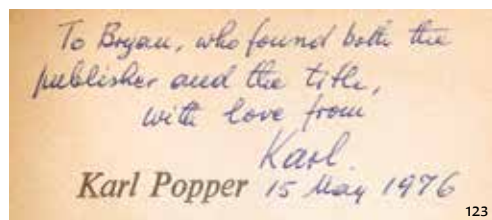 To Bryan, who found both the
publisher and the title,
with love from
Karl.
Karl Popper 15 May 1976
123